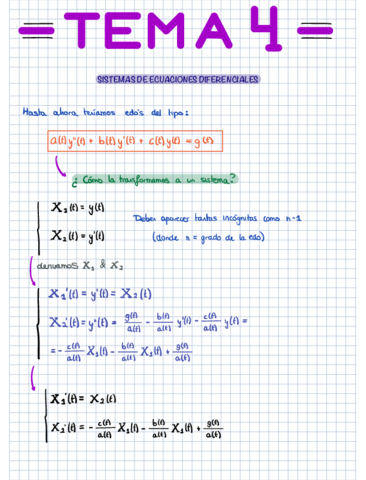 = TEMA 4 =
SISTEMAS DE ECUACIONES DIFERENCIALES
Hasta ahora teníamos edo's del tipo:
a(t)y''(t) + b(t)y'(t) + c(t)y(t) = g(t)
¿Cómo la trasformamos a un sistema?
X₁(t) = y(t)
X₂(t) = y'(t)
Deben aparecer tantas incógnitas como n-1
(donde n = grado de la edo)
derivamos X₁ & X₂
X₁'(t) = y'(t) = X₂(t)
X₂'(t) = y''(t) = g(t)/a(t) - b(t)/a(t) y'(t) - c(t)/a(t) y(t) =
= - c(t)/a(t) X₁(t) - b(t)/a(t) X₁(t) + g(t)/a(t)
X₁'(t) = X₂(t)
X₂'(t) = - c(t)/a(t) X₁(t) - b(t)/a(t) X₁(t) + g(t)/a(t)